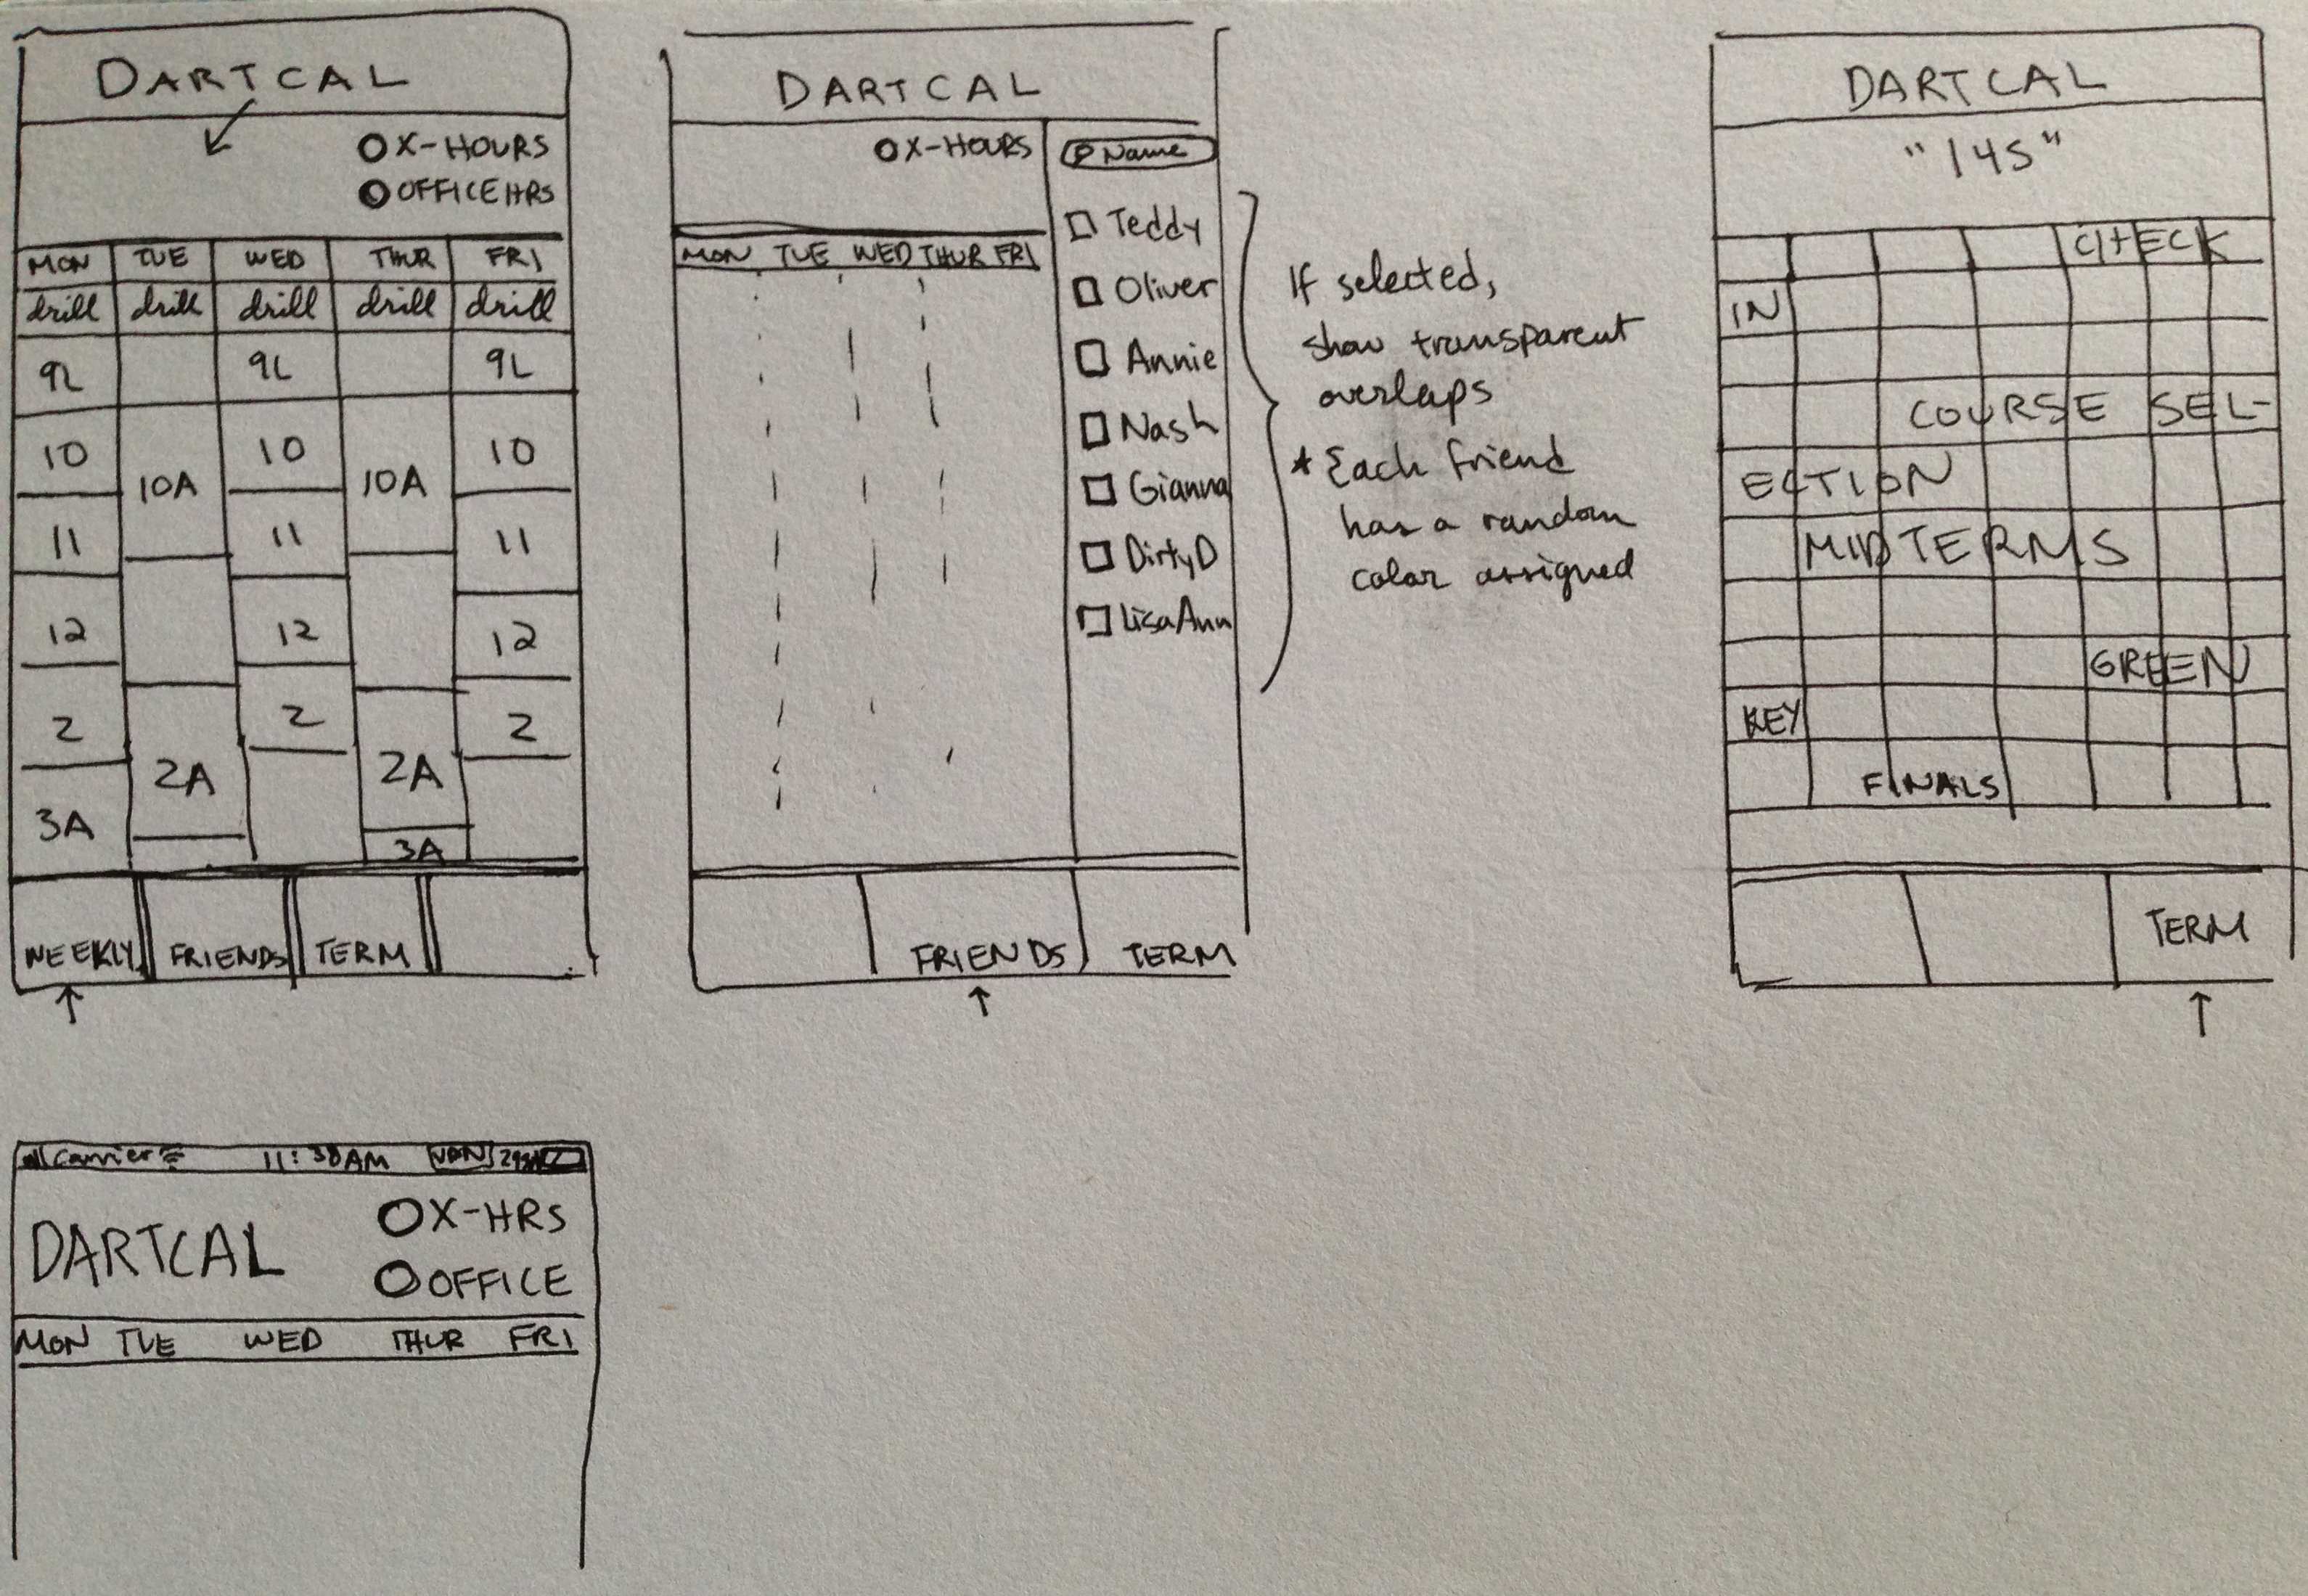 DARTCAL
X-HOURS
OFFICE HRS
MON TUE WED THUR FRI
drill drill drill drill drill
9L 9L 9L
10 10A 10 10A 10
11 11 11
12 12 12
2 2A 2 2A 2
3A 3A
WEEKLY FRIENDS TERM
DARTCAL
X-HOURS
Name
MON TUE WED THUR FRI
Teddy
Oliver
Annie
Nash
Gianna
DirtyD
LisaAnn
FRIENDS TERM
If selected,
show transparent
overlaps
* Each friend
has a random
color assigned
DARTCAL
"14S"
CHECK
IN
COURSE SEL-
ECTION
MIDTERMS
GREEN
KEY
FINALS
TERM
Carrier 11:38AM VPN
DARTCAL
X-HRS
OFFICE
MON TUE WED THUR FRI